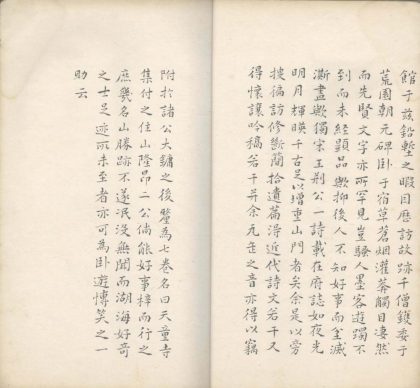 館于茲鉛槧之暇目歷訪故跡千僧鑊委于
荒園朝元碑卧于宿草蒼烟灌莽觸目凄然
而先賢文字亦所罕見豈騷人墨客遊躅不
到而未經顯品歟抑後人不知好事而至滅
澌盡歟獨宋王荆公一詩載在府誌如夜光
明月輝暎千古足以增重山門者矣余是以旁
搜徧訪修斷簡拾遺篇淂近代詩文若干又
得懷讓吟稿若干并余亢缶之音亦得以竊
附扵諸公大鏞之後釐為七卷名曰天童寺
集付之住山隆昂二公倘能好事梓而行之
庶幾名山勝跡不遂泯没無聞而湖海好奇
之士足迹所未至者亦可為卧遊愽笑之一
助云